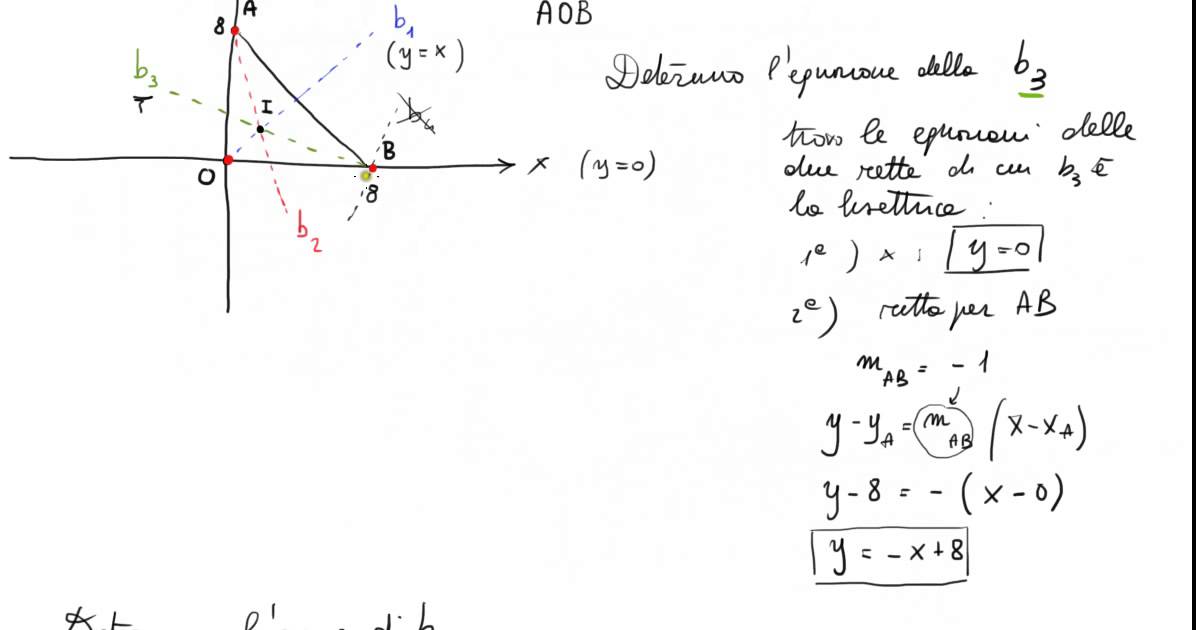 A
8
AOB
b₁
(y=x)
b₃
I
b₄
B
O
8
x (y=0)
b₂
Determino l'equazione della b₃
trovo le equazioni delle
due rette di cui b₃ è
la bisettrice :
1ᵉ) x : y=0
2ᵉ) retta per AB
m_AB = -1
y-y_A = m_AB (x-x_A)
y-8 = -(x-0)
y = -x+8